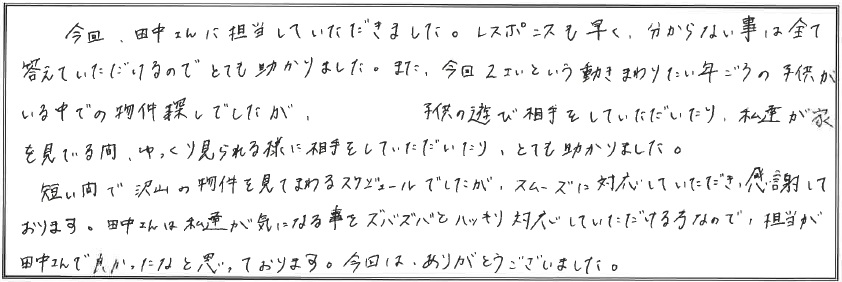 今回、田中さんに担当していただきました。レスポンスも早く、分からない事は全て
答えていただけるのでとても助かりました。また、今回2才という動きまわりたい年ごろの子供が
いる中での物件探しでしたが、子供の遊び相手をしていただいたり、私達が家
を見ている間、ゆっくり見られる様に相手をしていただいたり、とても助かりました。
短い間で沢山の物件を見てまわるスケジュールでしたが、スムーズに対応していただき、感謝して
おります。田中さんは私達が気になる事をズバズバとハッキリ対応していただける方なので、担当が
田中さんで良かったなと思っております。今回は、ありがとうございました。